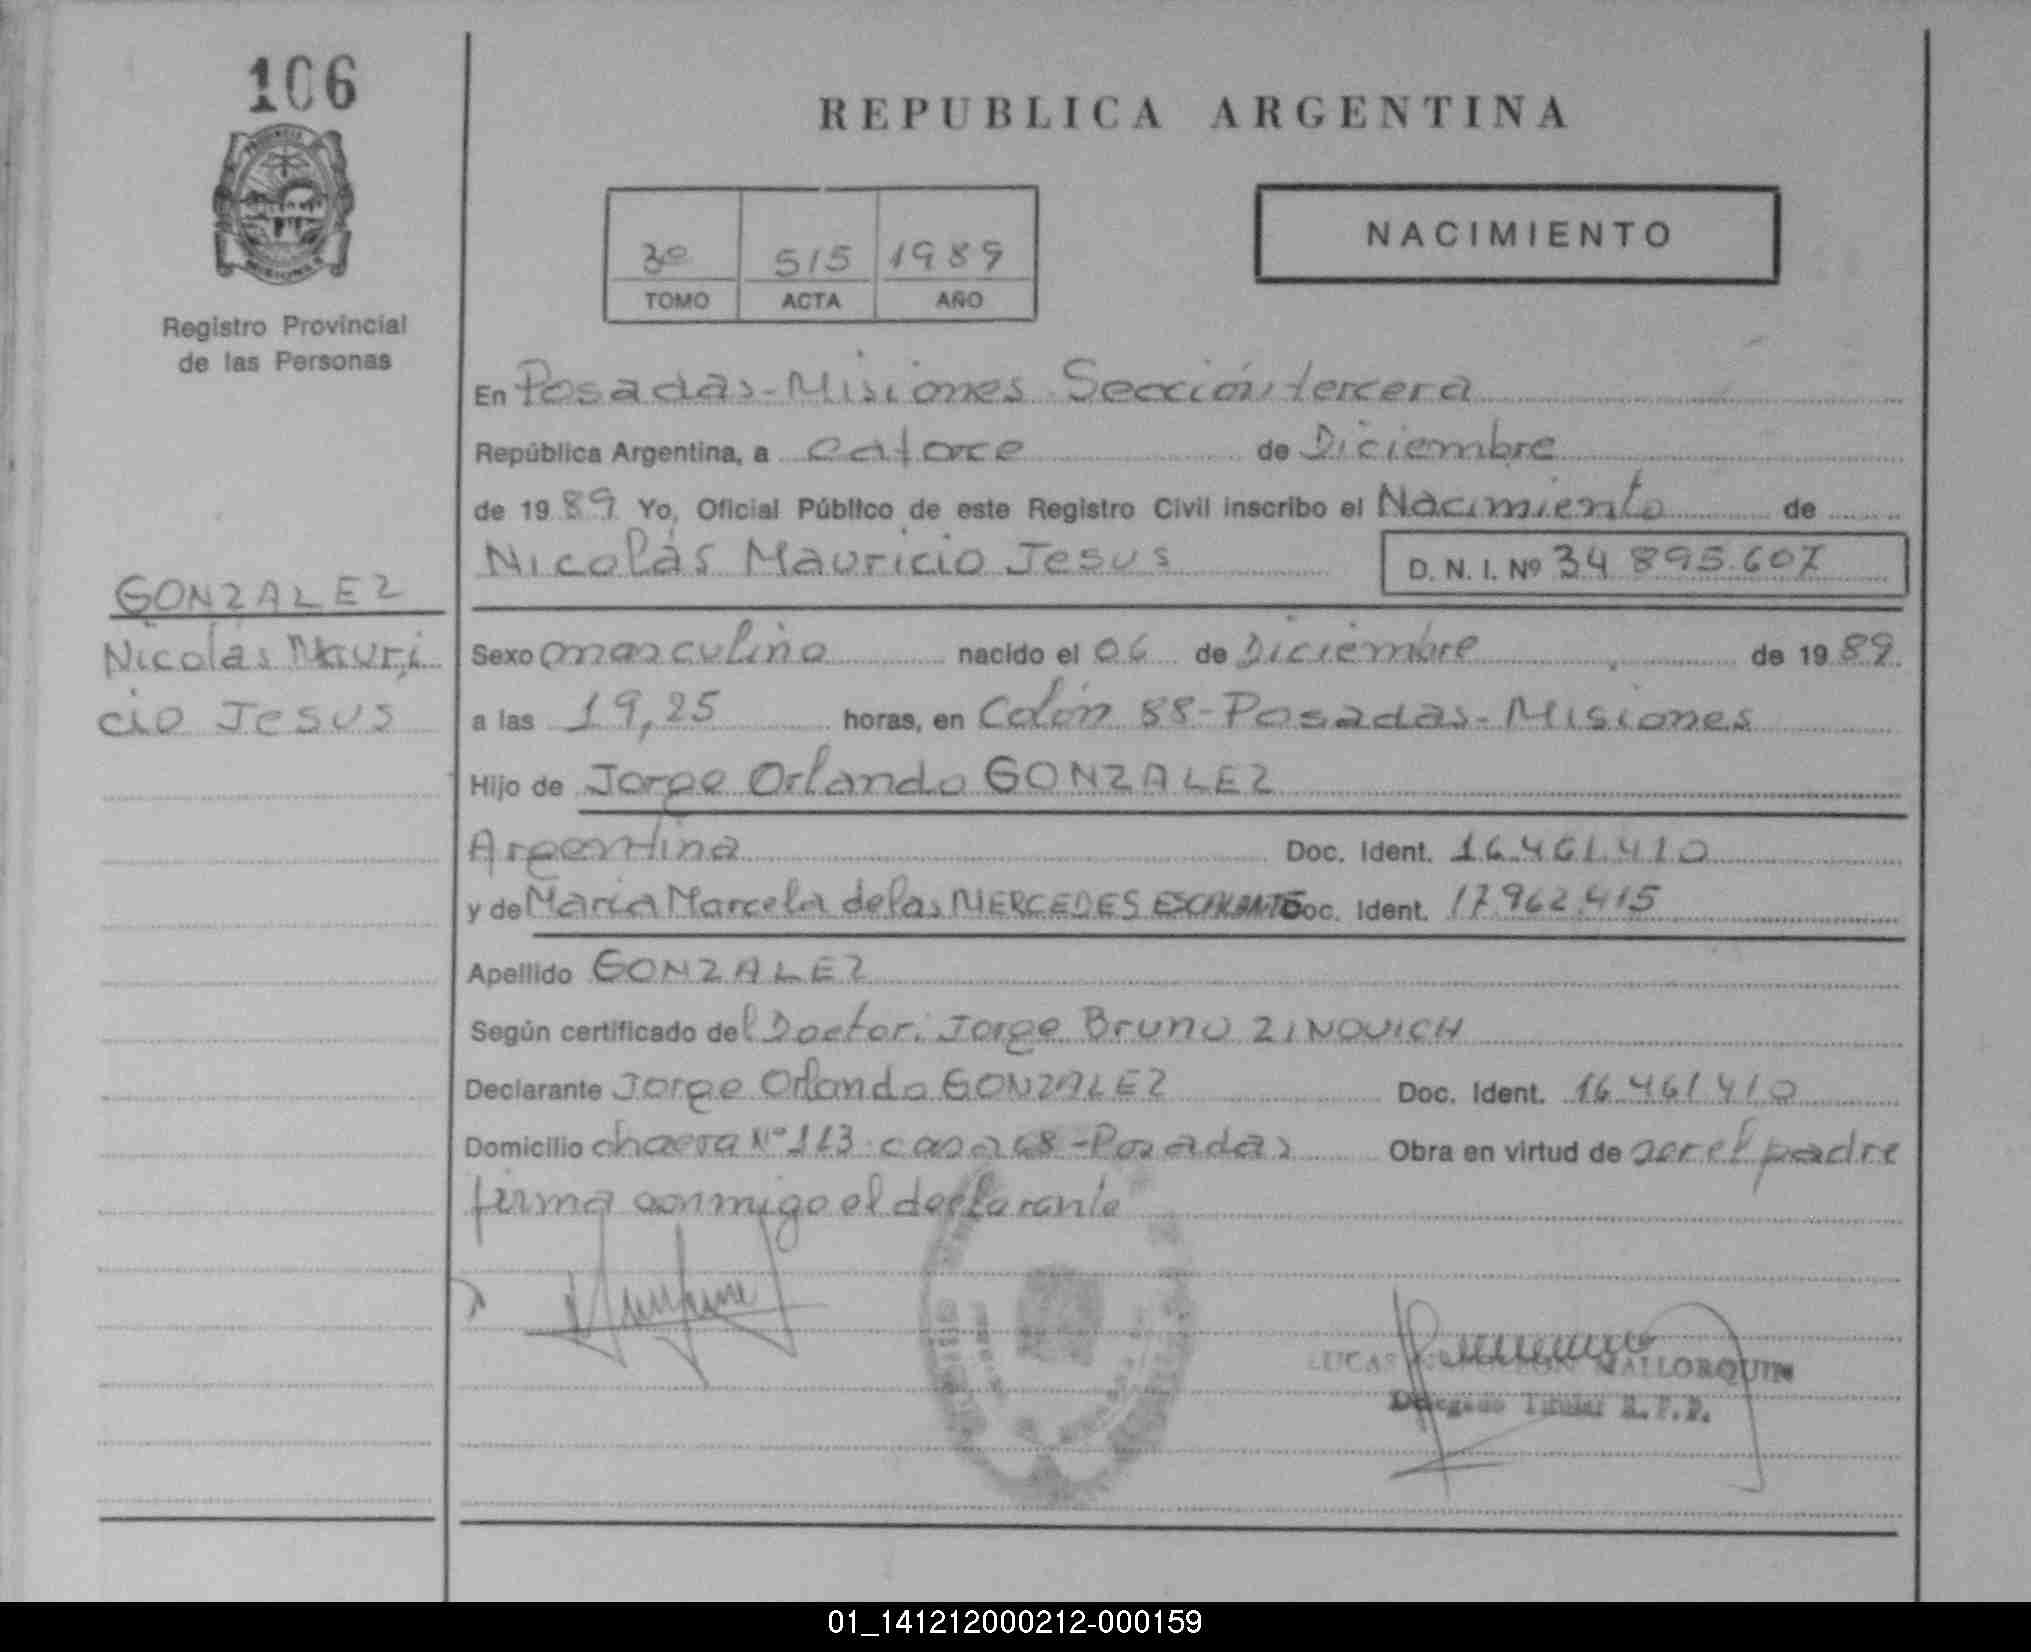 106
REPUBLICA ARGENTINA
NACIMIENTO
3º 515 1989
TOMO ACTA AÑO
Registro Provincial
de las Personas
En Posadas-Misiones Sección tercera
República Argentina, a catorce de Diciembre
de 1989 Yo, Oficial Público de este Registro Civil inscribo el Nacimiento de
Nicolás Mauricio Jesus D. N. I. Nº 34 895.607
GONZALEZ
Nicolás Mauri
cio Jesus
Sexo masculino nacido el 06 de Diciembre de 1989
a las 19,25 horas, en Colón 88-Posadas-Misiones
Hijo de Jorge Orlando GONZALEZ
Argentina Doc. Ident. 16.461.410
y de María Marcela de las MERCEDES ESCALANTE Doc. Ident. 17.962.415
Apellido GONZALEZ
Según certificado del Doctor: Jorge Bruno ZINOVICH
Declarante Jorge Orlando GONZALEZ Doc. Ident. 16.461.410
Domicilio chacra Nº 113 casa 68-Posadas Obra en virtud de ser el padre
firma conmigo el declarante
LUCAS MALLORQUIN
Delegado Titular R.P.P.
01_141212000212-000159